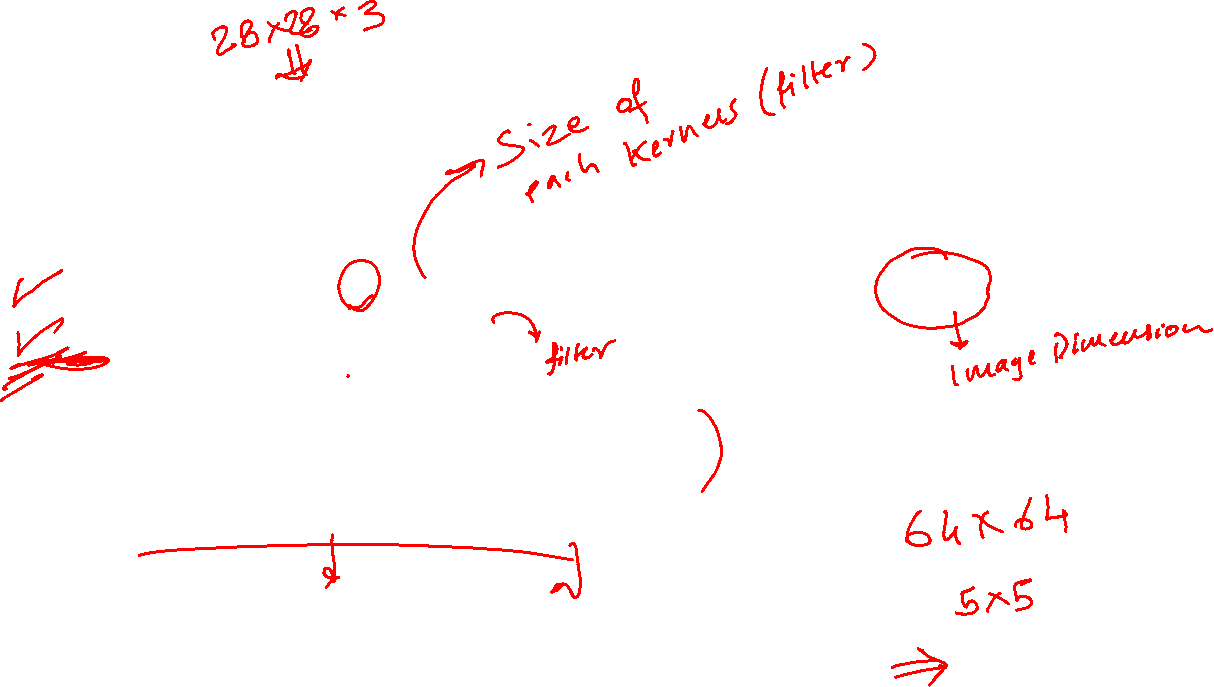 28×28×3
Size of
each Kernels (filter)
filter
Image Dimension
64×64
5×5